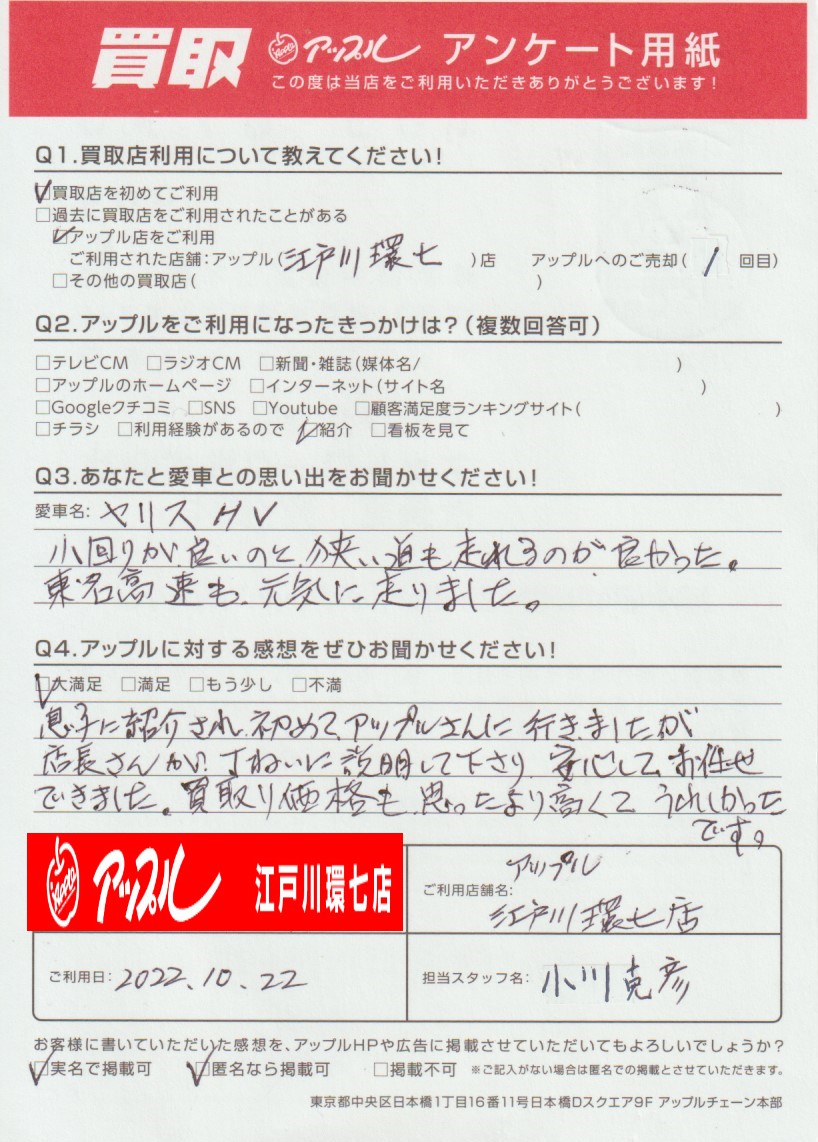 買取 アップル アンケート用紙
この度は当店をご利用いただきありがとうございます!
Q1.買取店利用について教えてください!
☑買取店を初めてご利用
□過去に買取店をご利用されたことがある
☑アップル店をご利用
ご利用された店舗:アップル(江戸川環七)店 アップルへのご売却(1回目)
□その他の買取店( )
Q2.アップルをご利用になったきっかけは?(複数回答可)
□テレビCM □ラジオCM □新聞・雑誌(媒体名/ )
□アップルのホームページ □インターネット(サイト名 )
□Googleクチコミ □SNS □Youtube □顧客満足度ランキングサイト( )
□チラシ □利用経験があるので ☑紹介 □看板を見て
Q3.あなたと愛車との思い出をお聞かせください!
愛車名:ヤリスHV
小回りが良いのと、狭い道も走れるのが良かった。
東名高速も元気に走りました。
Q4.アップルに対する感想をぜひお聞かせください!
☑大満足 □満足 □もう少し □不満
息子に紹介され、初めてアップルさんに行きましたが
店長さんがていねいに説明して下さり、安心してお任せ
できました。買取り価格も思ったより高くてうれしかった
です。
Apple アップル 江戸川環七店
ご利用店舗名:アップル
江戸川環七店
ご利用日:2022.10.22
担当スタッフ名:小川克彦
お客様に書いていただいた感想を、アップルHPや広告に掲載させていただいてもよろしいでしょうか?
☑実名で掲載可 ☑匿名なら掲載可 □掲載不可 ※ご記入がない場合は匿名での掲載とさせていただきます。
東京都中央区日本橋1丁目16番11号日本橋Dスクエア9F アップルチェーン本部